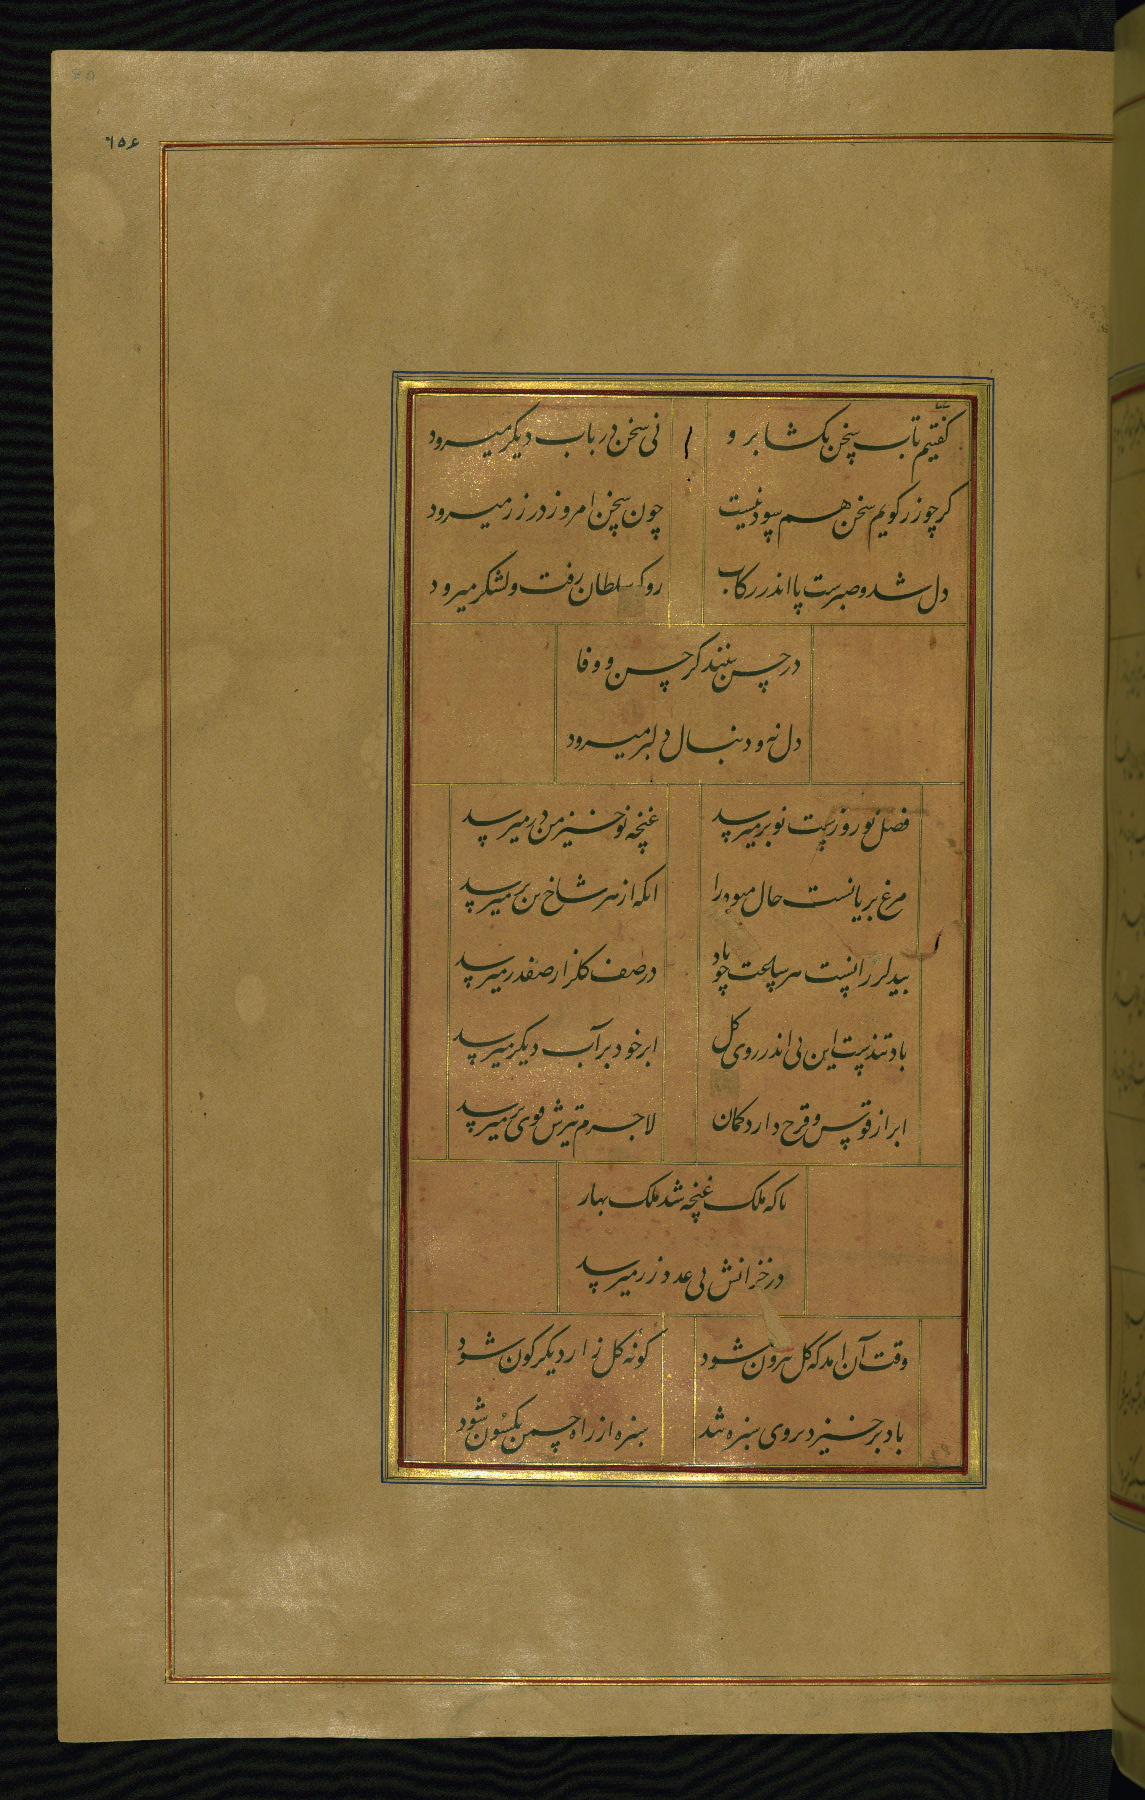 ٦٥٤
گفتیم تاب سخن بکشا برو نی سخن در باب دیکر میرود
کر چو زر کویم سخن هم سود نیست چون سخن امروز در زر میرود
دل شد و صبرست پا اندر رکاب رو که سلطان رفت و لشکر میرود
در حسن بیند کر حسن و وفا
دل نه و دنبال دلبر میرود
فصل نوروزست نوبر میرسد غنچه نوخیز من در میرسد
مرغ بریانست حال میوه را انکه از هر شاخ من بر میرسد
بید لرزانست هر ساعت چو باد در صف کلزار صفدر میرسد
باد تندست این بی اندر روی کل ابر خود بر آب دیکر میرسد
ابر از قوس و قزح دارد کمان لاجرم تیرش قوی تر میرسد
تا که ملک غنچه شد ملک بهار
در خزانش بی عدد زر میرسد
وقت آن امد که کل بیرون شود کونه کلزار دیکر کون شود
باد برخیزد بروی سبزه شد سبزه از راه چمن یکسون شود